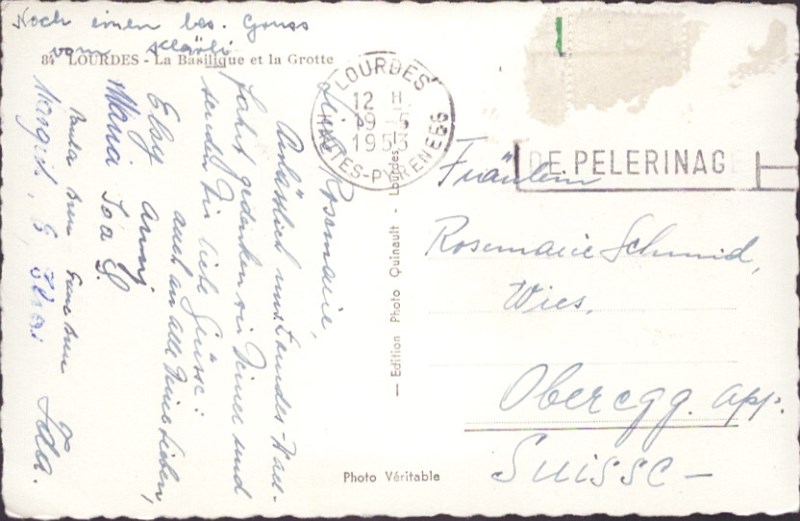 Noch einen bes. Gruss
vom Klärli
84 LOURDES - La Basilique et la Grotte
LOURDES
12 H
19 - 5
1953
HTES-PYRENEES
DE PELERINAGE
Liebe Rosmarie,
Anlässlich uns. Lourdes-Wall-
fahrt gedenken wir Deiner und
senden Dir liebe Grüsse:
auch an alle Deine Lieben,
Elsy Anny
Maria Ida S.
Margrit,
Ida.
— Edition Photo Quinault - Lourdes —
Photo Véritable
Fräulein
Rosemarie Schmid,
Wies,
Oberegg. App.
Suisse —